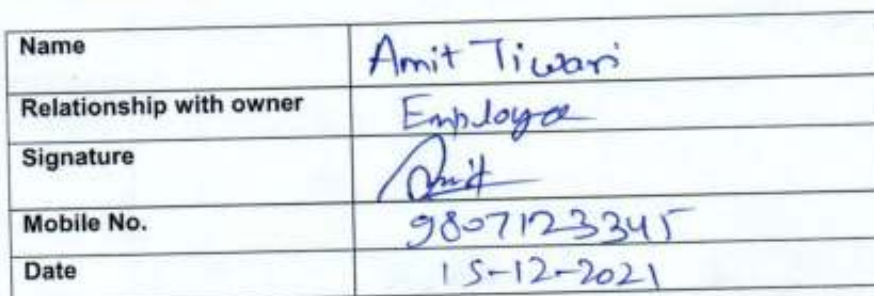 Name Amit Tiwari
Relationship with owner Employee
Signature Amit
Mobile No. 9807123345
Date 15-12-2021